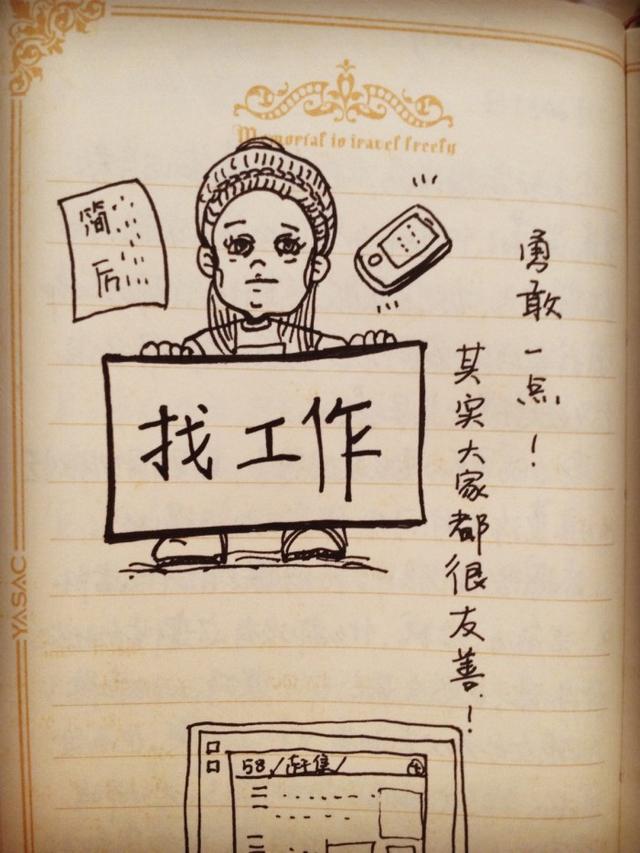 Memorial to travel freely
简
历
找工作
勇敢一点！
其实大家都很友善！
YASAC
58/